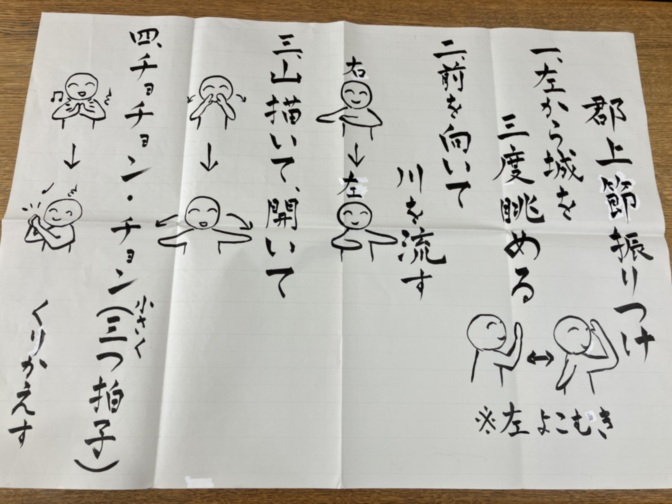 郡上節振りつけ
一、左から城を
三度眺める
※左よこむき
二、前を向いて
川を流す
右
左
三、山描いて、開いて
四、チョチョン・チョン(三つ拍子)
小さく
くりかえす